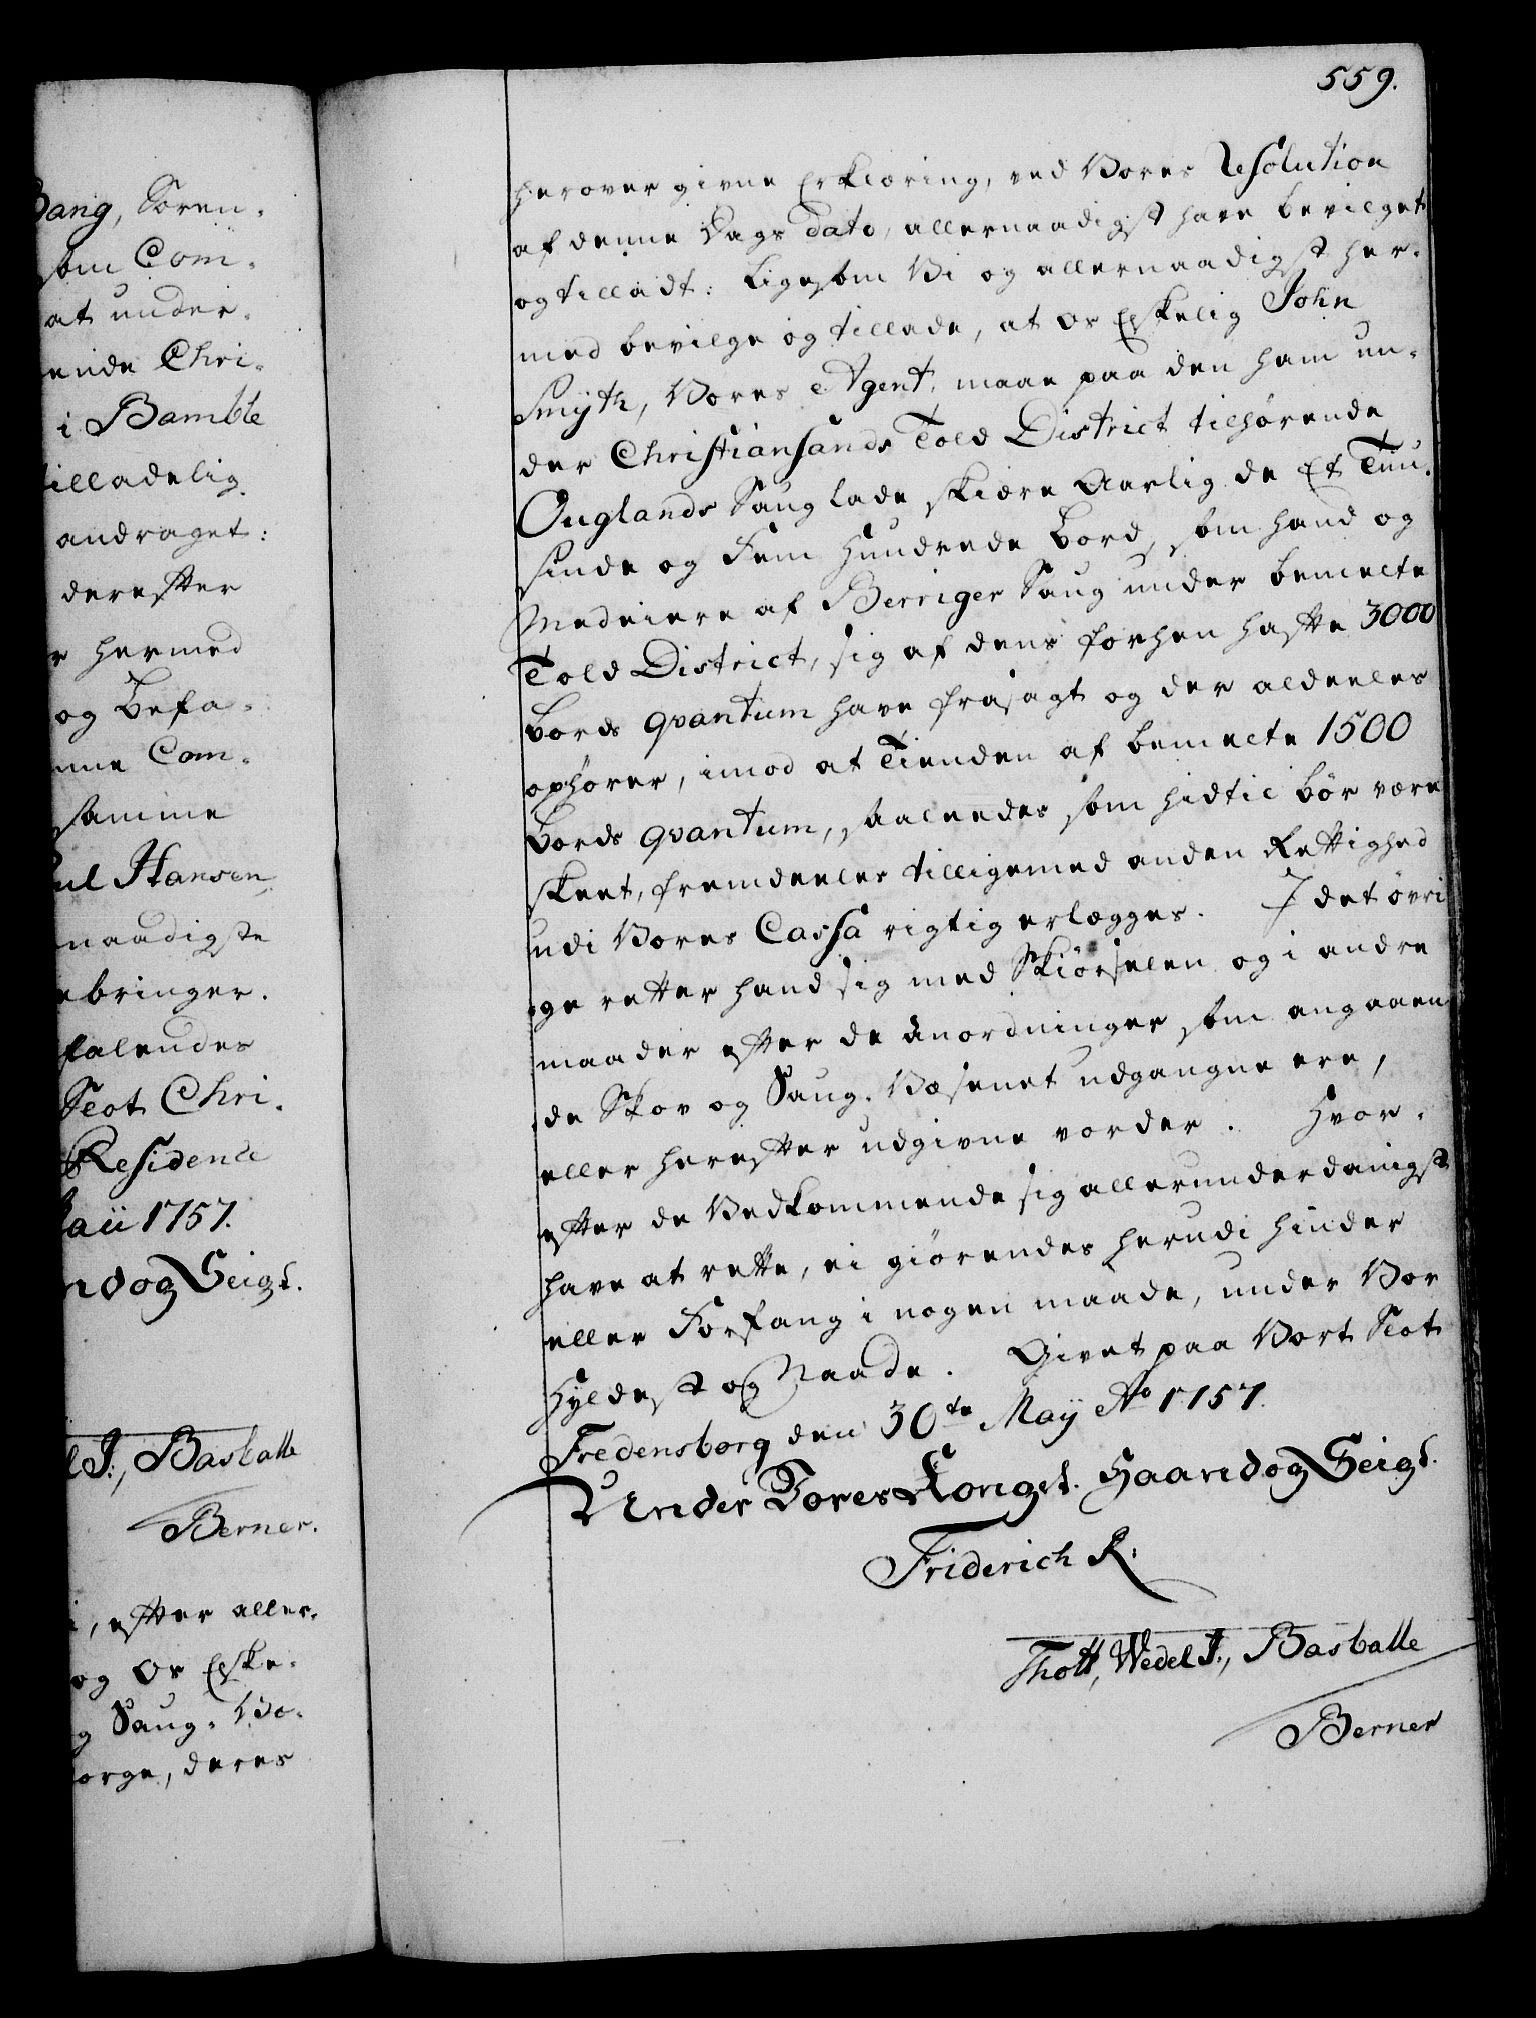 559.
herover givne Erklæring, ved Vores Resolution
af denne Dags Dato, allernaadigst have bevilget
og tilladt: ligesom Vi og allernaadigst her-
med bevilge og tillade, at Os Elskelig John
Smÿth, Vores Agent, maae paa den ham un-
der Christiansands Told District tilhørende
Ouglands Saug lade skiære Aarlig de Et Tuu-
sinde og Fem Hundrede Bord, som hand og
Medeiere af Berriger Saug under bemelte
Told District, sig af dens forhen hafte 3000
Bords qvantum have frasagt og der aldeeles
ophører, imod at Tienden af bemelte 1500
Bords qvantum, saaleedes som hidtil bør være
skeet, fremdeeles tilligemed anden Rettighed
udi Vores Cassa rigtig erlægges. I det øvri
ge retter hand sig med Skiørselen og i andre
maader efter de Anordninger som angaaen
de Skov og Saug-Væsenet udgangne ere,
eller herefter udgivne vorder. Hvor-
efter de Vedkommende sig allerunderdanigst
have at rette, ei giørendes herudi hinder
eller Forfang i nogen maade, under Vor
Hyldest og Naade. Givet paa Vort Slot
Fredensborg den 30te Maÿ Ao 1757.
Under Vores Kongel. Haand og Seigl.
Friderich R:
Thott, Wedel J:, Basballe
Berner
Bang, Sören-
som Com-
at under-
ende Chri-
i Bamble
tilladelig
andraget:
derefter
hermed
og Befa-
nne Com-
samme
Hansen,
naadigste
ebringer.
faleendes
Slot Chri-
Residence
Maii 1757.
nd og Seigl.
l J:, Basballe
Berner.
, efter aller-
og Os Elske-
g Saug-Væ-
orge, deres